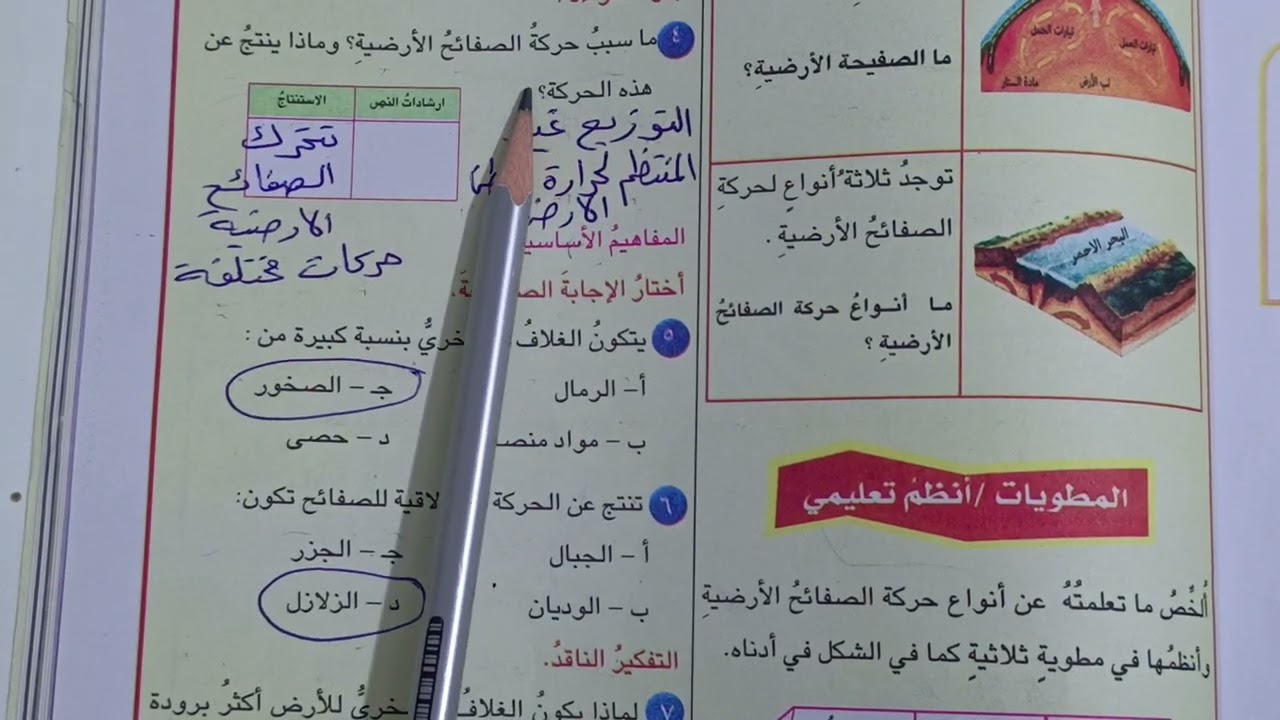 ما الصفيحة الأرضيةِ؟
تيارات الحمل
تيارات الحمل
مادة الستار
لب الأرض
توجدُ ثلاثةُ أنواعٍ لحركةِ
الصفائحُ الأرضيةِ .
ما أنواعُ حركة الصفائحُ
الأرضيةِ ؟
البحر الاحمر
المطويات /أنظمُ تعليمي
اُلخِّصُ ما تعلمتُهُ عن أنواع حركة الصفائحُ الأرضيةِ
وأنظمُها في مطويةٍ ثلاثيةٍ كما في الشكل في أدناه.
٤ ما سببُ حركةُ الصفائحُ الأرضيةِ؟ وماذا ينتجُ عن
هذه الحركة؟
ارشاداتُ النصِ
الاستنتاجُ
التوزيع
المنتظم لحرارة
تتحرك
الصفائح
الارضية
حركات مختلفة
المفاهيمُ
أختارُ الإجابةَ
٥ يتكونُ الغلافُ بنسبة كبيرة من :
أ– الرمال
جـ – الصخور
ب – مواد
د – حصى
٦ تنتج عن الحركة للصفائح تكون:
أ – الجبال
جـ – الجزر
ب – الوديان
د – الزلازل
التفكيرُ الناقدُ.
٧ لماذا يكونُ الغلافُ للأرض أكثرُ برودة